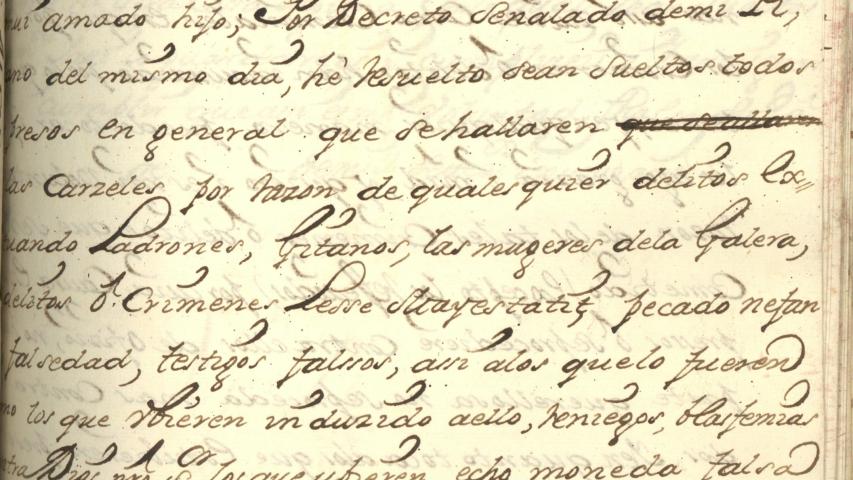 mui amado hijo; Por Decreto señalado demi Rl,
ano del mismo dia, hè resuelto sean sueltos todos
presos en general que se hallaren que seallaren
las Carzeles por razon de quales quier delitos ex=
tuando Ladrones, Gitanos, las mugeres dela Galera,
delitos ô Crimenes Lesse Mayestatis, pecado nefan
falsedad, testigos falsos, assi alos quelo fueren
mo los que vbieren induzido aello, reniegos, blasfemias
ntra Dios nrõ Sor los que vbieren echo moneda falsa